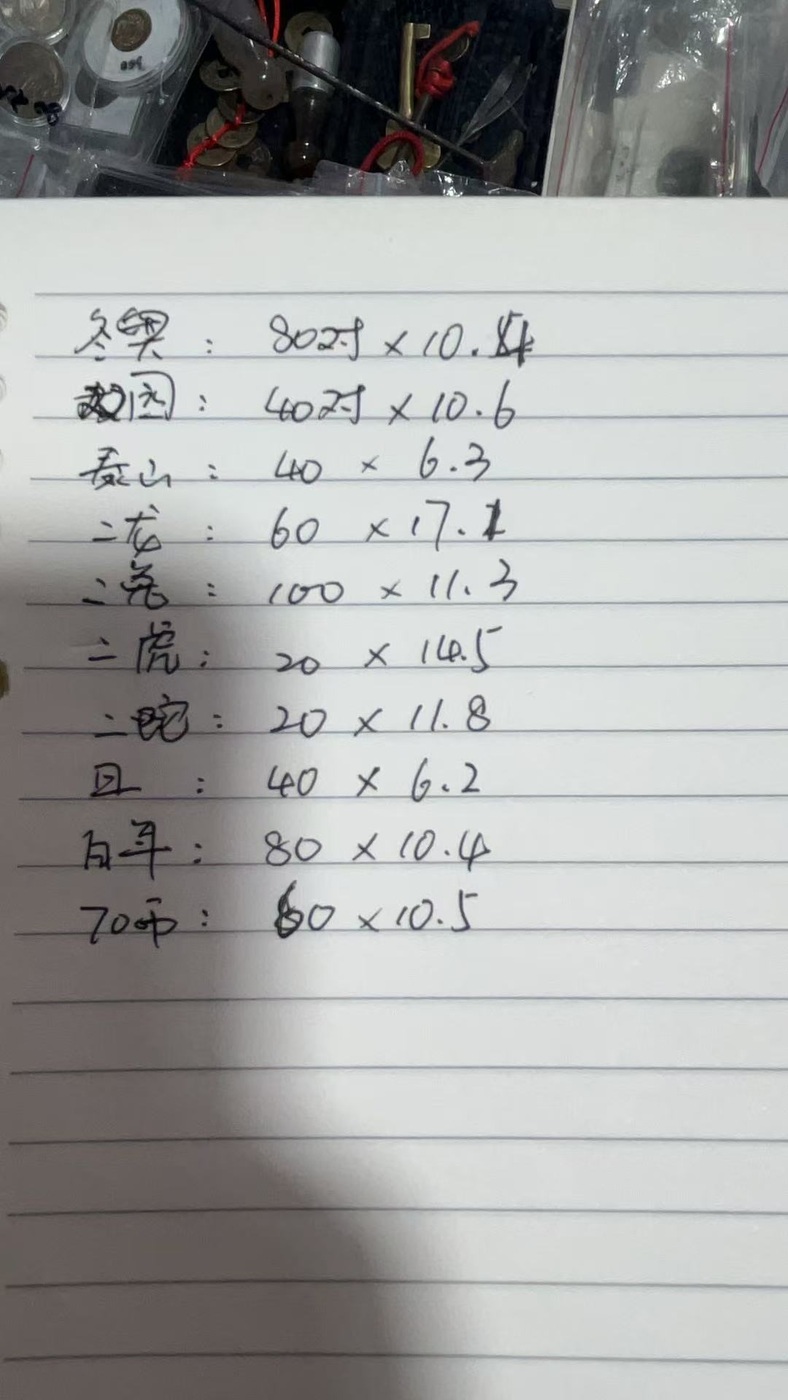 冬奥：80对×10.4
国：40对×10.6
泰山：40×6.3
二龙：60×17.1
二兔：100×11.3
二虎：20×14.5
二蛇：20×11.8
：40×6.2
百年：80×10.4
70币：60×10.5